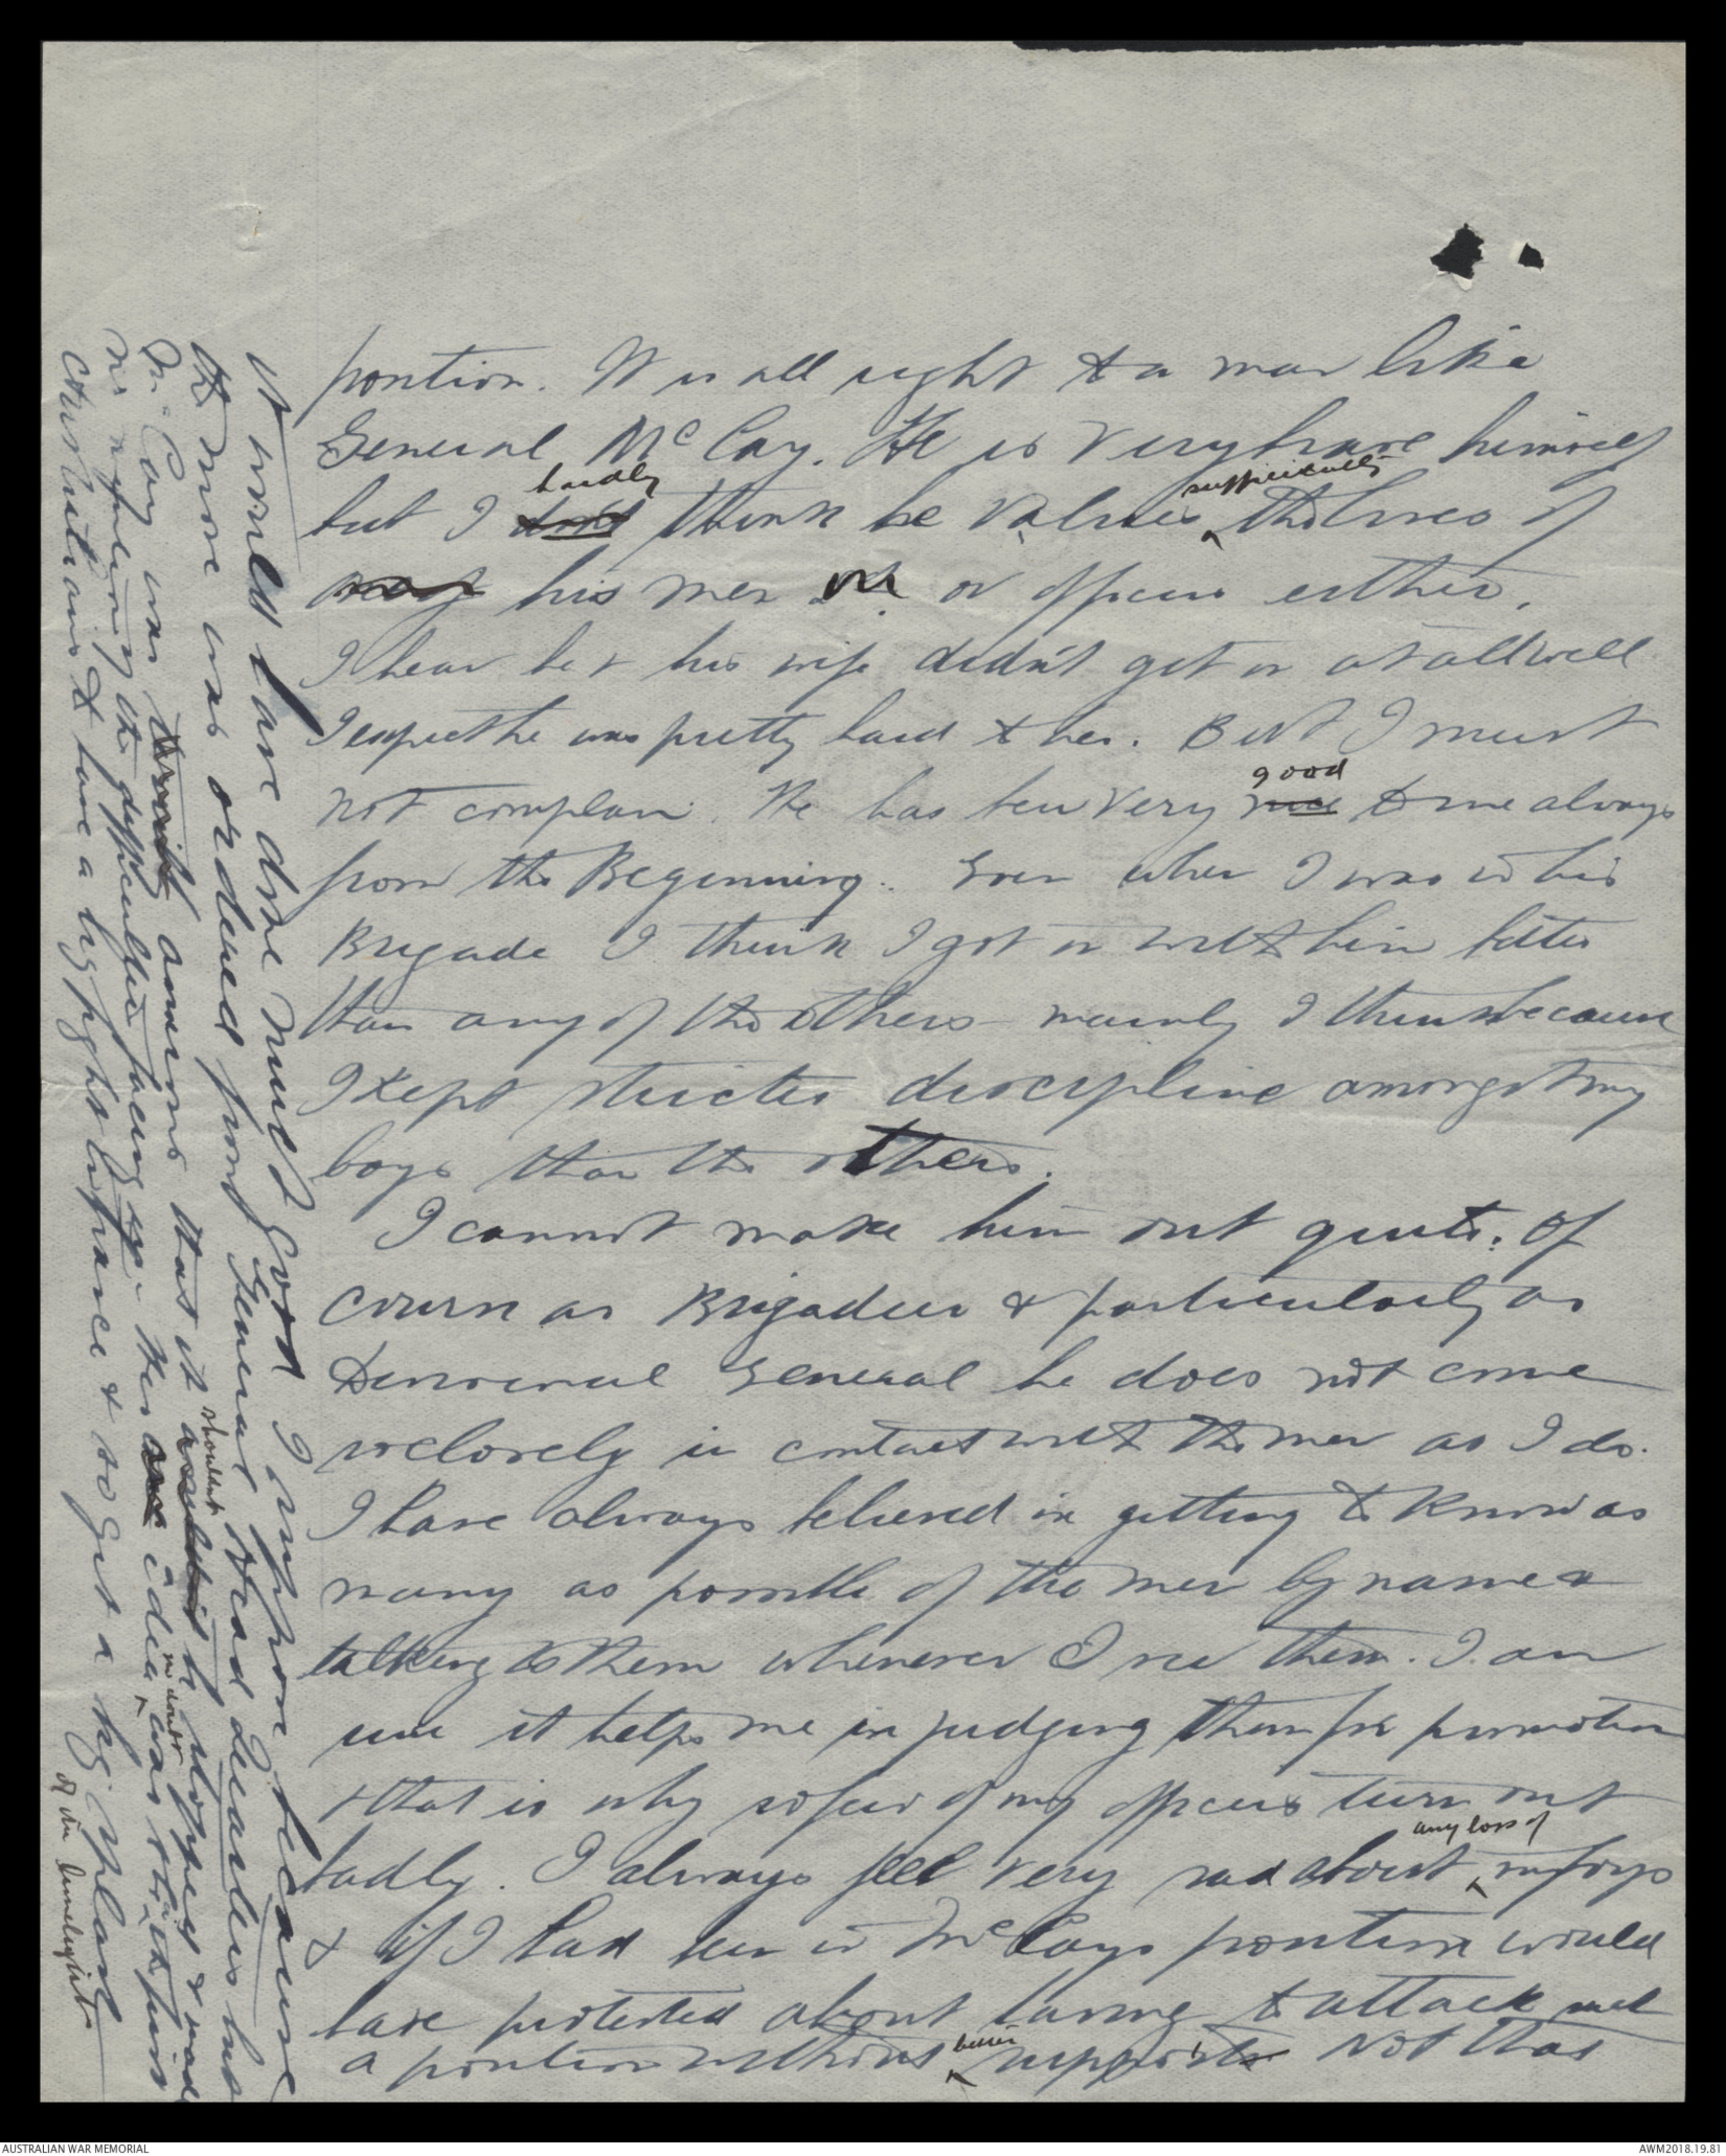 position. It is all right to a man like
General McCay. He is very brave himself
but I dont hardly think he values sufficiently the lives of
his men or officers either.
I hear he & his wife didn't get on at all well
I expect he was pretty hard to her. But I must
not complain. He has been very nice good to me always
from the Beginning. Even when I was in his
Brigade I think I got on with him better
than any of the others mainly I think because
I kept stricter discipline amongst my
boys than the others.
I cannot make him out quite. Of
course as Brigadier & particularly as
Divisional General he does not come
so closely in contact with the men as I do.
I have always believed in getting to know as
many as possible of the men by name &
talking to them whenever I see them. I am
sure it helps me in judging them for promotion
& that is why so few of my officers turn out
badly. I always feel very sad about any loss of my boys
& if I had been in McCays position would
have protested about having to attack such
a position without better supports Not that
it would have done much good I suppose because
the move was ordered from General Head Quarters but
McCay was anxious that it shouldn't be stopped & made
me refrain of the difficulties facing us. His one idea no doubt was that the
Australians to have a big fight in France & so get a big splash
of the limelight.